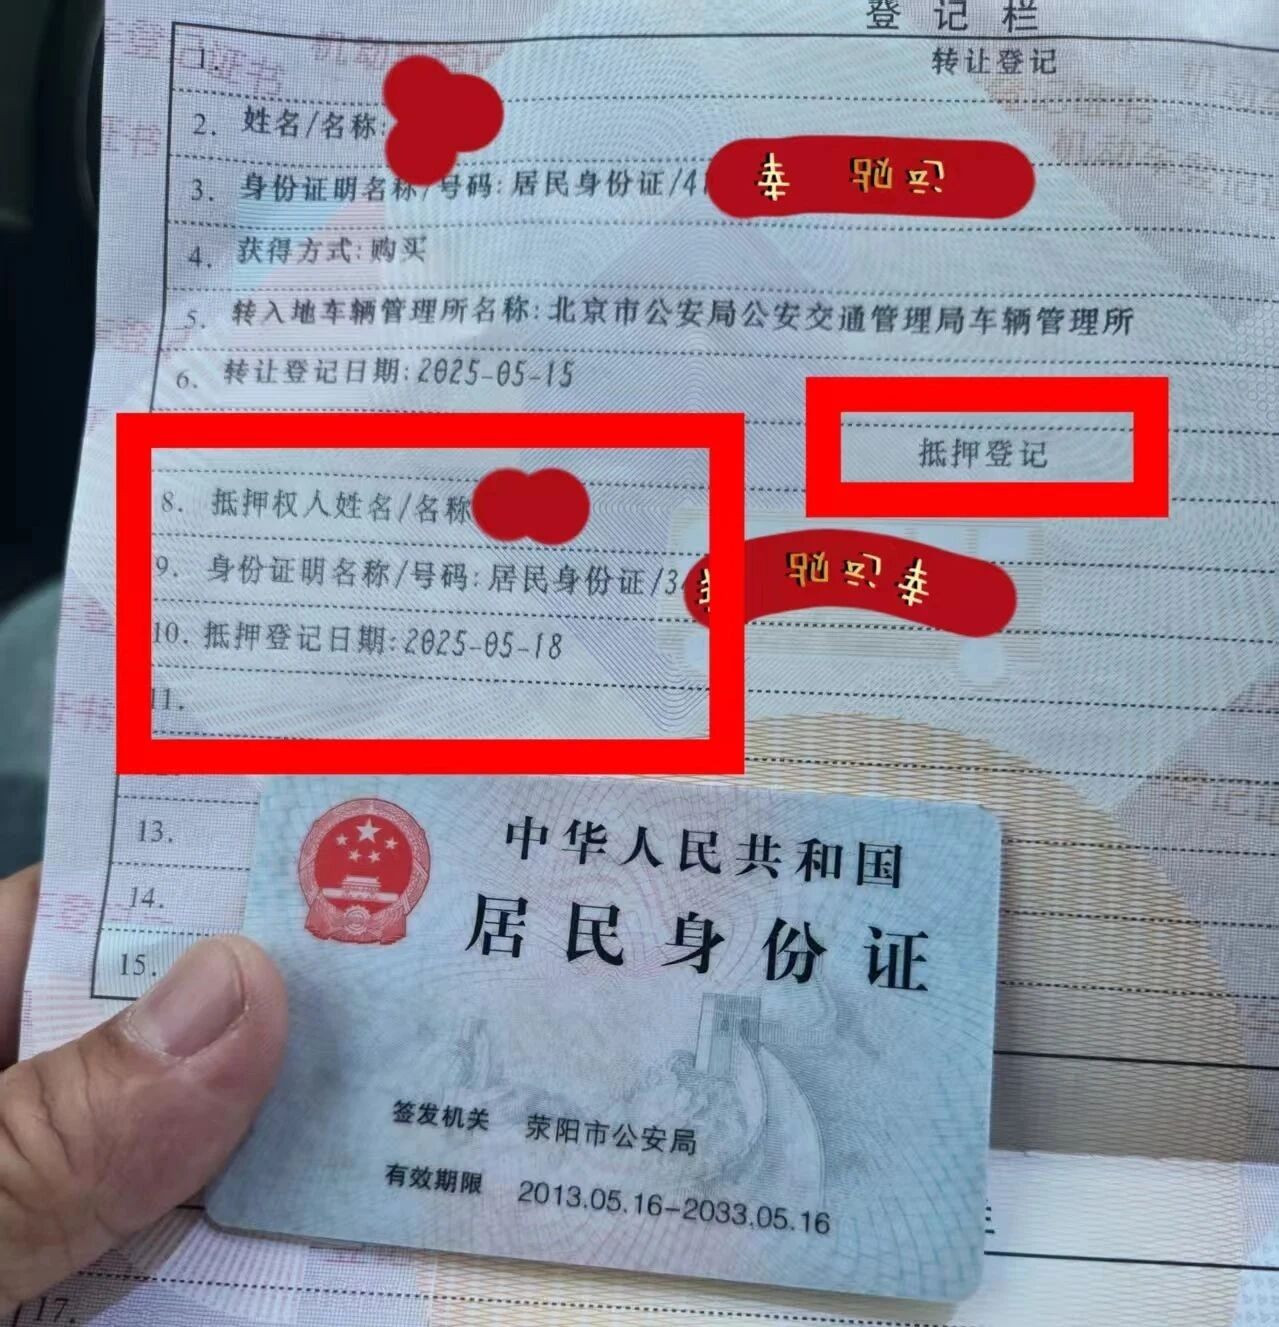 登记栏
1. 转让登记
2. 姓名/名称:
3. 身份证明名称/号码:居民身份证/41
4. 获得方式:购买
5. 转入地车辆管理所名称:北京市公安局公安交通管理局车辆管理所
6. 转让登记日期:2025-05-15
抵押登记
8. 抵押权人姓名/名称
9. 身份证明名称/号码:居民身份证/34
10. 抵押登记日期:2025-05-18
11.
13.
14.
15.
中华人民共和国
居民身份证
签发机关 荥阳市公安局
有效期限 2013.05.16-2033.05.16
17.